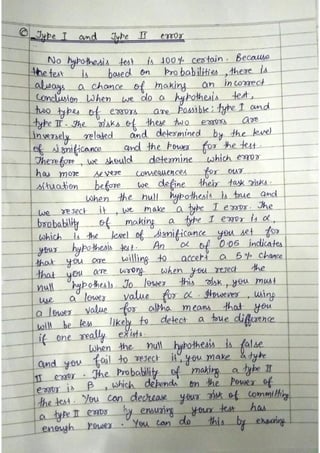 © Type I and Type II error
No hypothesis test is 100% certain. Because
the test is based on probabilities, there is
always a chance of making an incorrect
conclusion. When we do a hypothesis test,
two types of errors are possible: type I and
type II. The risks of these two errors are
inversely related and determined by the level
of significance and the power for the test.
Therefore, we should determine which error
has more severe consequences for our
situation before we define their task risks.
When the null hypothesis is true and
we reject it, we make a type I error. The
probability of making a type I error is α,
which is the level of significance you set for
your hypothesis test. An α of 0.05 indicates
that you are willing to accept a 5% chance
that you are wrong when you reject the
null hypothesis. To lower this risk, you must
use a lower value for α. However, using
a lower value for alpha means that you
will be less likely to detect a true difference
if one really exists.
When the null hypothesis is false
and you fail to reject it, you make a type
II error. The Probability of making a type II
error is β, which depends on the Power of
the test. You can decrease your risk of committing
a type II error by ensuring your test has
enough Power. You can do this by ensuring